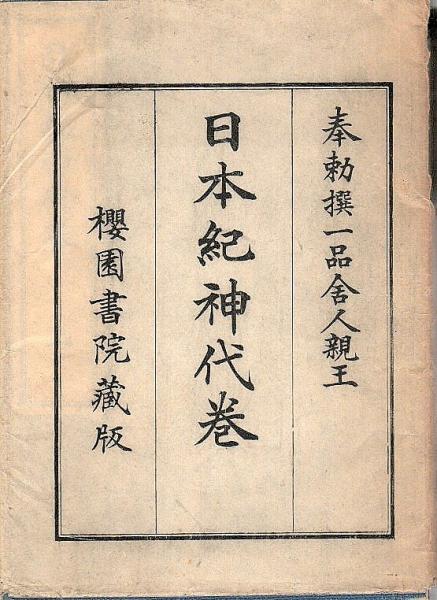 奉勅撰一品舍人親王
日本紀神代巻
櫻園書院藏版